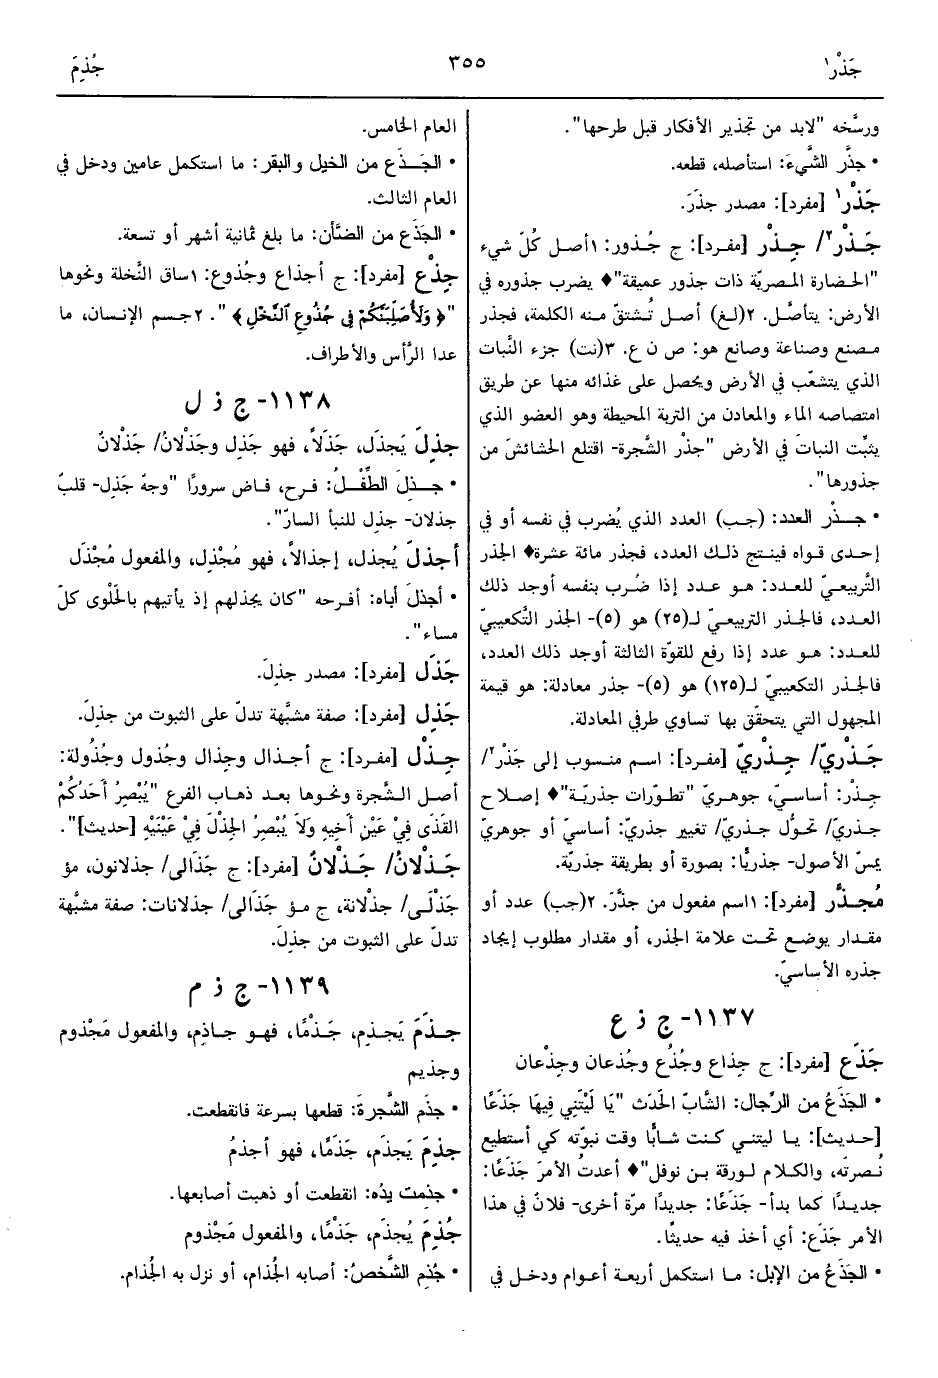 جَذْر١
٣٥٥
جُذِمَ
ورسَّخه "لابد من تجذير الأفكار قبل طرحها".
• جذَّر الشَّيءَ: استأصله، قطعه.
جَذْر١ [مفرد]: مصدر جذَرَ.
جَذْر٢/ جِذْر [مفرد]: ج جُذور: ١أصل كُلّ شيء
"الحضارة المصريّة ذات جذور عميقة"♦ يضرب جذوره في
الأرض: يتأصَّل. ٢(لغ) أصل تُشتقّ منه الكلمة، فجذر
مصنع وصناعة وصانع هو: ص ن ع. ٣(نت) جزء النَّبات
الذي يتشعّب في الأرض ويحصل على غذائه منها عن طريق
امتصاصه الماء والمعادن من التربة المحيطة وهو العضو الذي
يثبِّت النباتَ في الأرض "جذْر الشَّجرة- اقتلع الحشائشَ من
جذورها".
• جذْر العدد: (جب) العدد الذي يُضرب في نفسه أو في
إحدى قواه فينتج ذلك العدد، فجذر مائة عشرة♦ الجذر
التَّربيعيّ للعدد: هو عدد إذا ضُرب بنفسه أوجد ذلك
العدد، فالجذر التربيعيّ لـ(٢٥) هو (٥)- الجذر التّكعيبيّ
للعدد: هو عدد إذا رفع للقوّة الثالثة أوجد ذلك العدد،
فالجذر التكعيبيّ لـ(١٢٥) هو (٥)- جذر معادلة: هو قيمة
المجهول التي يتحقّق بها تساوي طرفي المعادلة.
جَذْريّ/ جِذْريّ [مفرد]: اسم منسوب إلى جَذْر٢/
جِذْر: أساسيّ، جوهريّ "تطوّرات جذريّة"♦ إصلاح
جذريّ/ تحوُّل جذريّ/ تغيير جذريّ: أساسيّ أو جوهريّ
يمسّ الأصول- جذريًّا: بصورة أو بطريقة جذريّة.
مُجذَّر [مفرد]: ١اسم مفعول من جذَّرَ. ٢(جب) عدد أو
مقدار يوضع تحت علامة الجذر، أو مقدار مطلوب إيجاد
جذره الأساسيّ.
١١٣٧- ج ذ ع
جَذَع [مفرد]: ج جِذاع وجُذُع وجُذعان وجِذْعان
• الجَذَعُ من الرِّجال: الشَّابّ الحَدَث "يَا لَيْتَنِي فِيهَا جَذَعًا
[حديث]: يا ليتني كنت شابًّا وقت نبوّته كي أستطيع
نُصرتَه، والكلام لورقة بن نوفل"♦ أعدتُ الأمرَ جَذَعًا:
جديدًا كما بدأ- جَذَعًا: جديدًا مرّة أخرى- فلانٌ في هذا
الأمر جَذَع: أي أخذ فيه حديثًا.
• الجَذَعُ من الإبل: ما استكمل أربعة أعوام ودخل في
العام الخامس.
• الجَذَع من الخيل والبقر: ما استكمل عامين ودخل في
العام الثالث.
• الجَذَع من الضَّأن: ما بلغ ثمانية أشهر أو تسعة.
جِذْع [مفرد]: ج أجذاع وجُذوع: ١ساق النَّخلة ونحوها
"﴿ وَلَأُصَلِّبَنَّكُمْ فِي جُذُوعِ ٱلنَّخْلِ ﴾". ٢جسم الإنسان، ما
عدا الرَّأس والأطراف.
١١٣٨- ج ذ ل
جذِلَ يَجذَل، جَذَلاً، فهو جَذِل وجَذْلانُ/ جَذْلانٌ
• جذِلَ الطِّفْلُ: فرِح، فاض سرورًا "وجهٌ جَذِل- قلبٌ
جذلان- جذِل للنبأ السارّ".
أجذلَ يُجذل، إجذالاً، فهو مُجْذِل، والمفعول مُجْذَل
• أجذلَ أباه: أفرحه "كان يجذلهم إذ يأتيهم بالحَلْوى كلّ
مساء".
جَذَل [مفرد]: مصدر جذِلَ.
جَذِل [مفرد]: صفة مشبَّهة تدلّ على الثبوت من جذِلَ.
جِذْل [مفرد]: ج أجذال وجِذال وجُذول وجُذُولة:
أصل الشَّجرة ونحوها بعد ذهاب الفرع "يُبْصِرُ أَحَدُكُمْ
القَذَى فِيْ عَيْنِ أَخِيهِ وَلاَ يُبْصِرُ الجِذْلَ فِيْ عَيْنَيْهِ [حديث]".
جَذْلانُ/ جَذْلانٌ [مفرد]: ج جَذَالى/ جذلانون، مؤ
جَذْلَى/ جذلانة، ج مؤ جَذَالى/ جذلانات: صفة مشبَّهة
تدلّ على الثبوت من جذِلَ.
١١٣٩- ج ذ م
جذَمَ يَجذِم، جَذْمًا، فهو جاذِم، والمفعول مَجْذوم
وجذيم
• جذَم الشَّجرةَ: قطعها بسرعة فانقطعت.
جذِمَ يَجذَم، جَذَمًا، فهو أجذمُ
• جذِمت يدُه: انقطعت أو ذهبت أصابعها.
جُذِمَ يُجذَم، جَذْمًا، والمفعول مَجْذوم
• جُذِم الشَّخصُ: أصابه الجُذام، أو نزل به الجُذام.